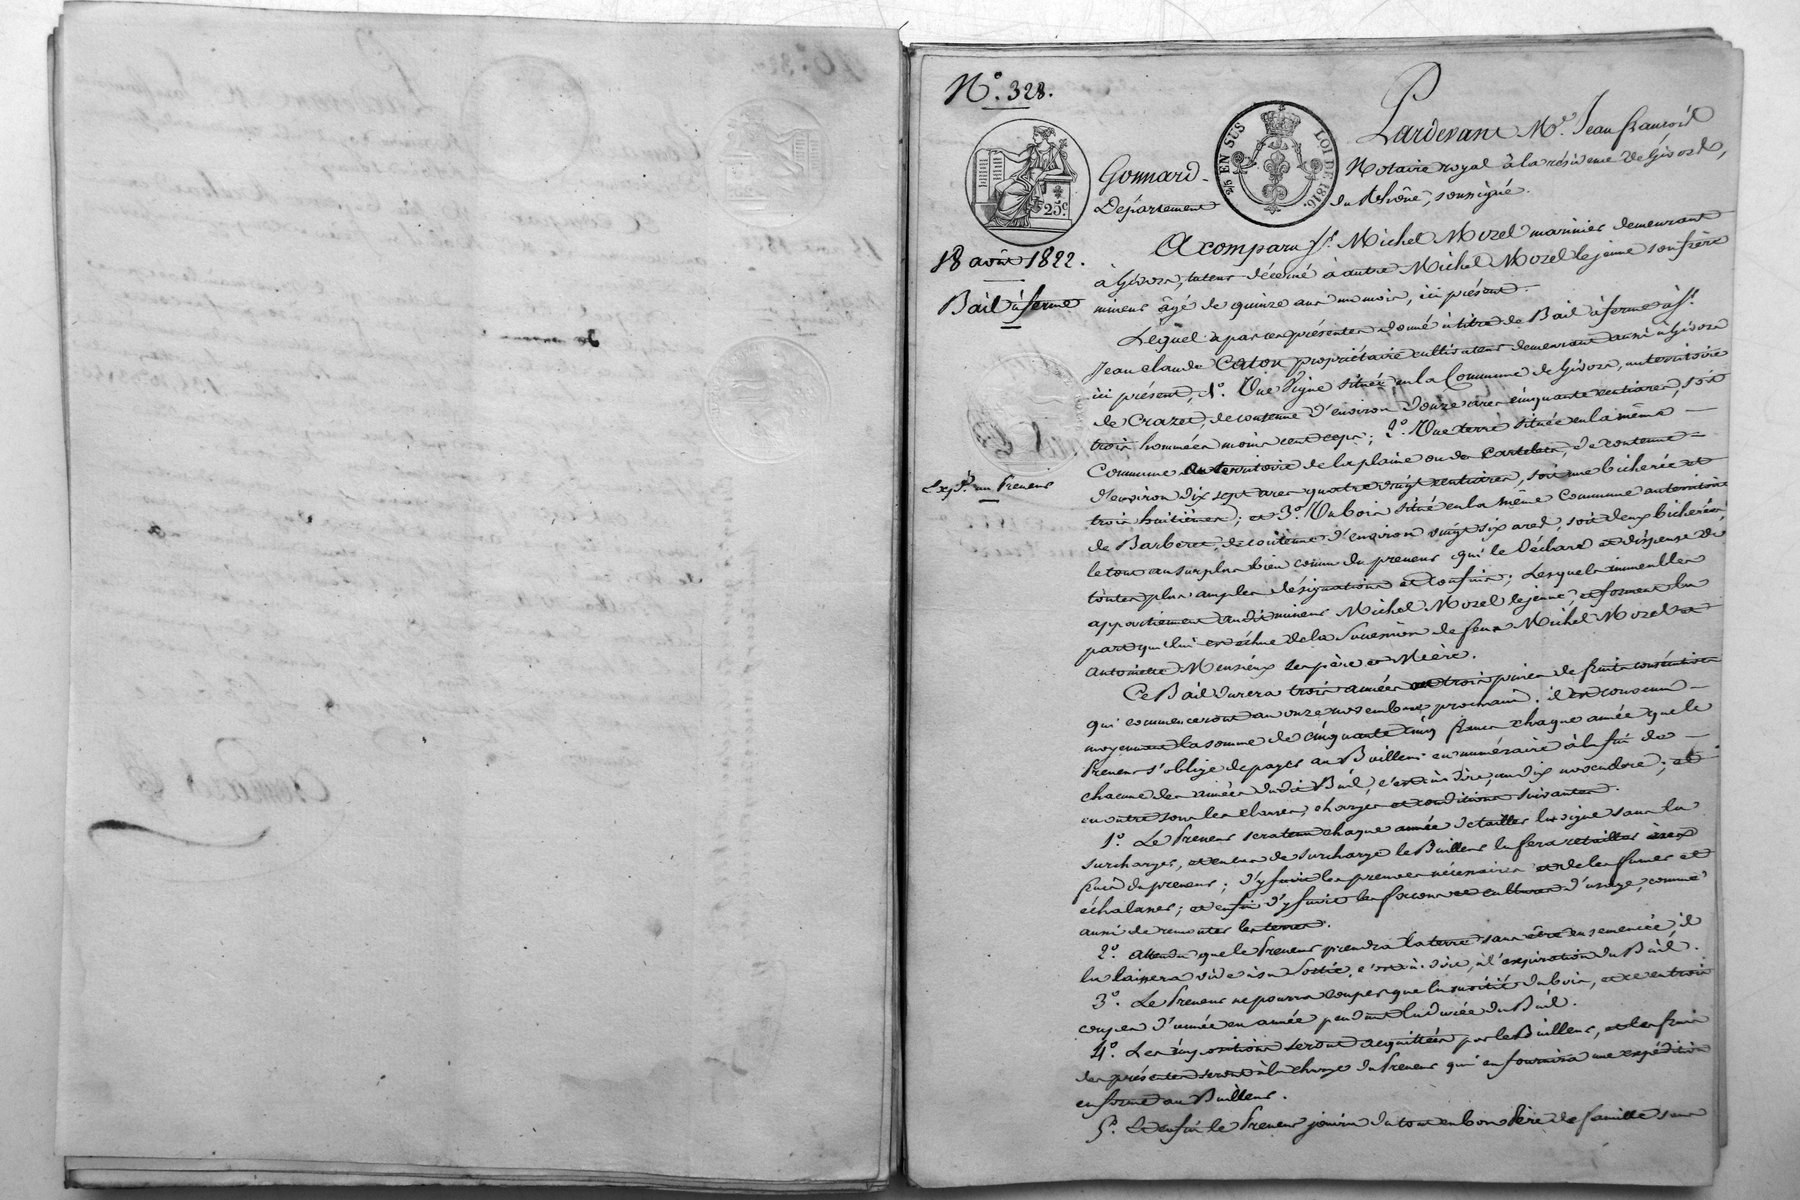 N.° 328.
Pardevant Me. Jean françois
Gonnard Notaire royal à la résidence de Givors,
Département du Rhône, soussigné.
25 c.
2/5 EN SUS
LOI DE 1816.
18 août 1822.
Bail à ferme
Exp.on au Preneur
A comparu Sr. Michel Mozel marinier demeurant
à Givors, tuteur décerné à autre Michel Mozel le jeune son frère
mineur âgé de quinze ans un mois, ici présent.
Lequel a par ces présentes donné à titre de Bail à ferme à Sr.
Jean claude Caton propriétaire cultivateur demeurant aussi à Givors
ici présent, 1°. Une Vigne située en la Commune de Givors, au territoire
de Crazet, de contenue d'environ douze ares cinquante centiares, soit
trois hommées moins cent ceps; 2°. Une terre située en la même
Commune au territoire de la plaine ou des de contenue
d'environ dix sept ares quatre vingt centiares, soit une bicherée et
trois huitièmes; et 3°. Un bois situé en la même Commune au territoire
de Barberet, de contenue d'environ vingt six ares, soit deux bicherées
le tout au surplus bien connu du preneur qui le déclare et dispense de
toutes plus amples désignations et confins; Lesquels immeubles
appartiennent audit mineur Michel Mozel le jeune, et forment la
part qui lui est échue de la Succession de feux Michel Mozel et
Antoinette ses père et Mère.
Ce Bail durera trois années ou trois prises de fruits consécutives
qui commenceront au onze novembre prochain. il est consenti
moyennant la somme de cinquante cinq francs chaque année que le
Preneur s'oblige de payer au Bailleur en numéraire à la fin de
chacune des années dudit Bail, c'est à dire, au dix novembre; et
en outre sous les clauses, charges et conditions suivantes.
1°. Le Preneur sera tenu chaque année de tailler la vigne sans la
surcharger, et en cas de surcharge le Bailleur la fera retailler aux
frais du preneur; d'y faire les nécessaires et de les fumer et
échalasser; et enfin d'y faire les façons et cultures d'usage, comme
aussi de remonter les terres.
2°. Attendu que le Preneur prendra la terre sans être ensemencée, il
la laissera vide à sa Sortie, c'est à dire, à l'expiration du Bail.
3°. Le Preneur ne pourra couper que la moitié du bois, et ce en trois
coupes d'année en année pendant la durée du Bail.
4°. Les impositions seront acquittées par le Bailleur, et les frais
des présentes seront à la charge du Preneur qui en fournira une expédition
en forme au Bailleur.
5°. Et enfin le Preneur jouira du tout en bon Père de famille sans
Gonnard